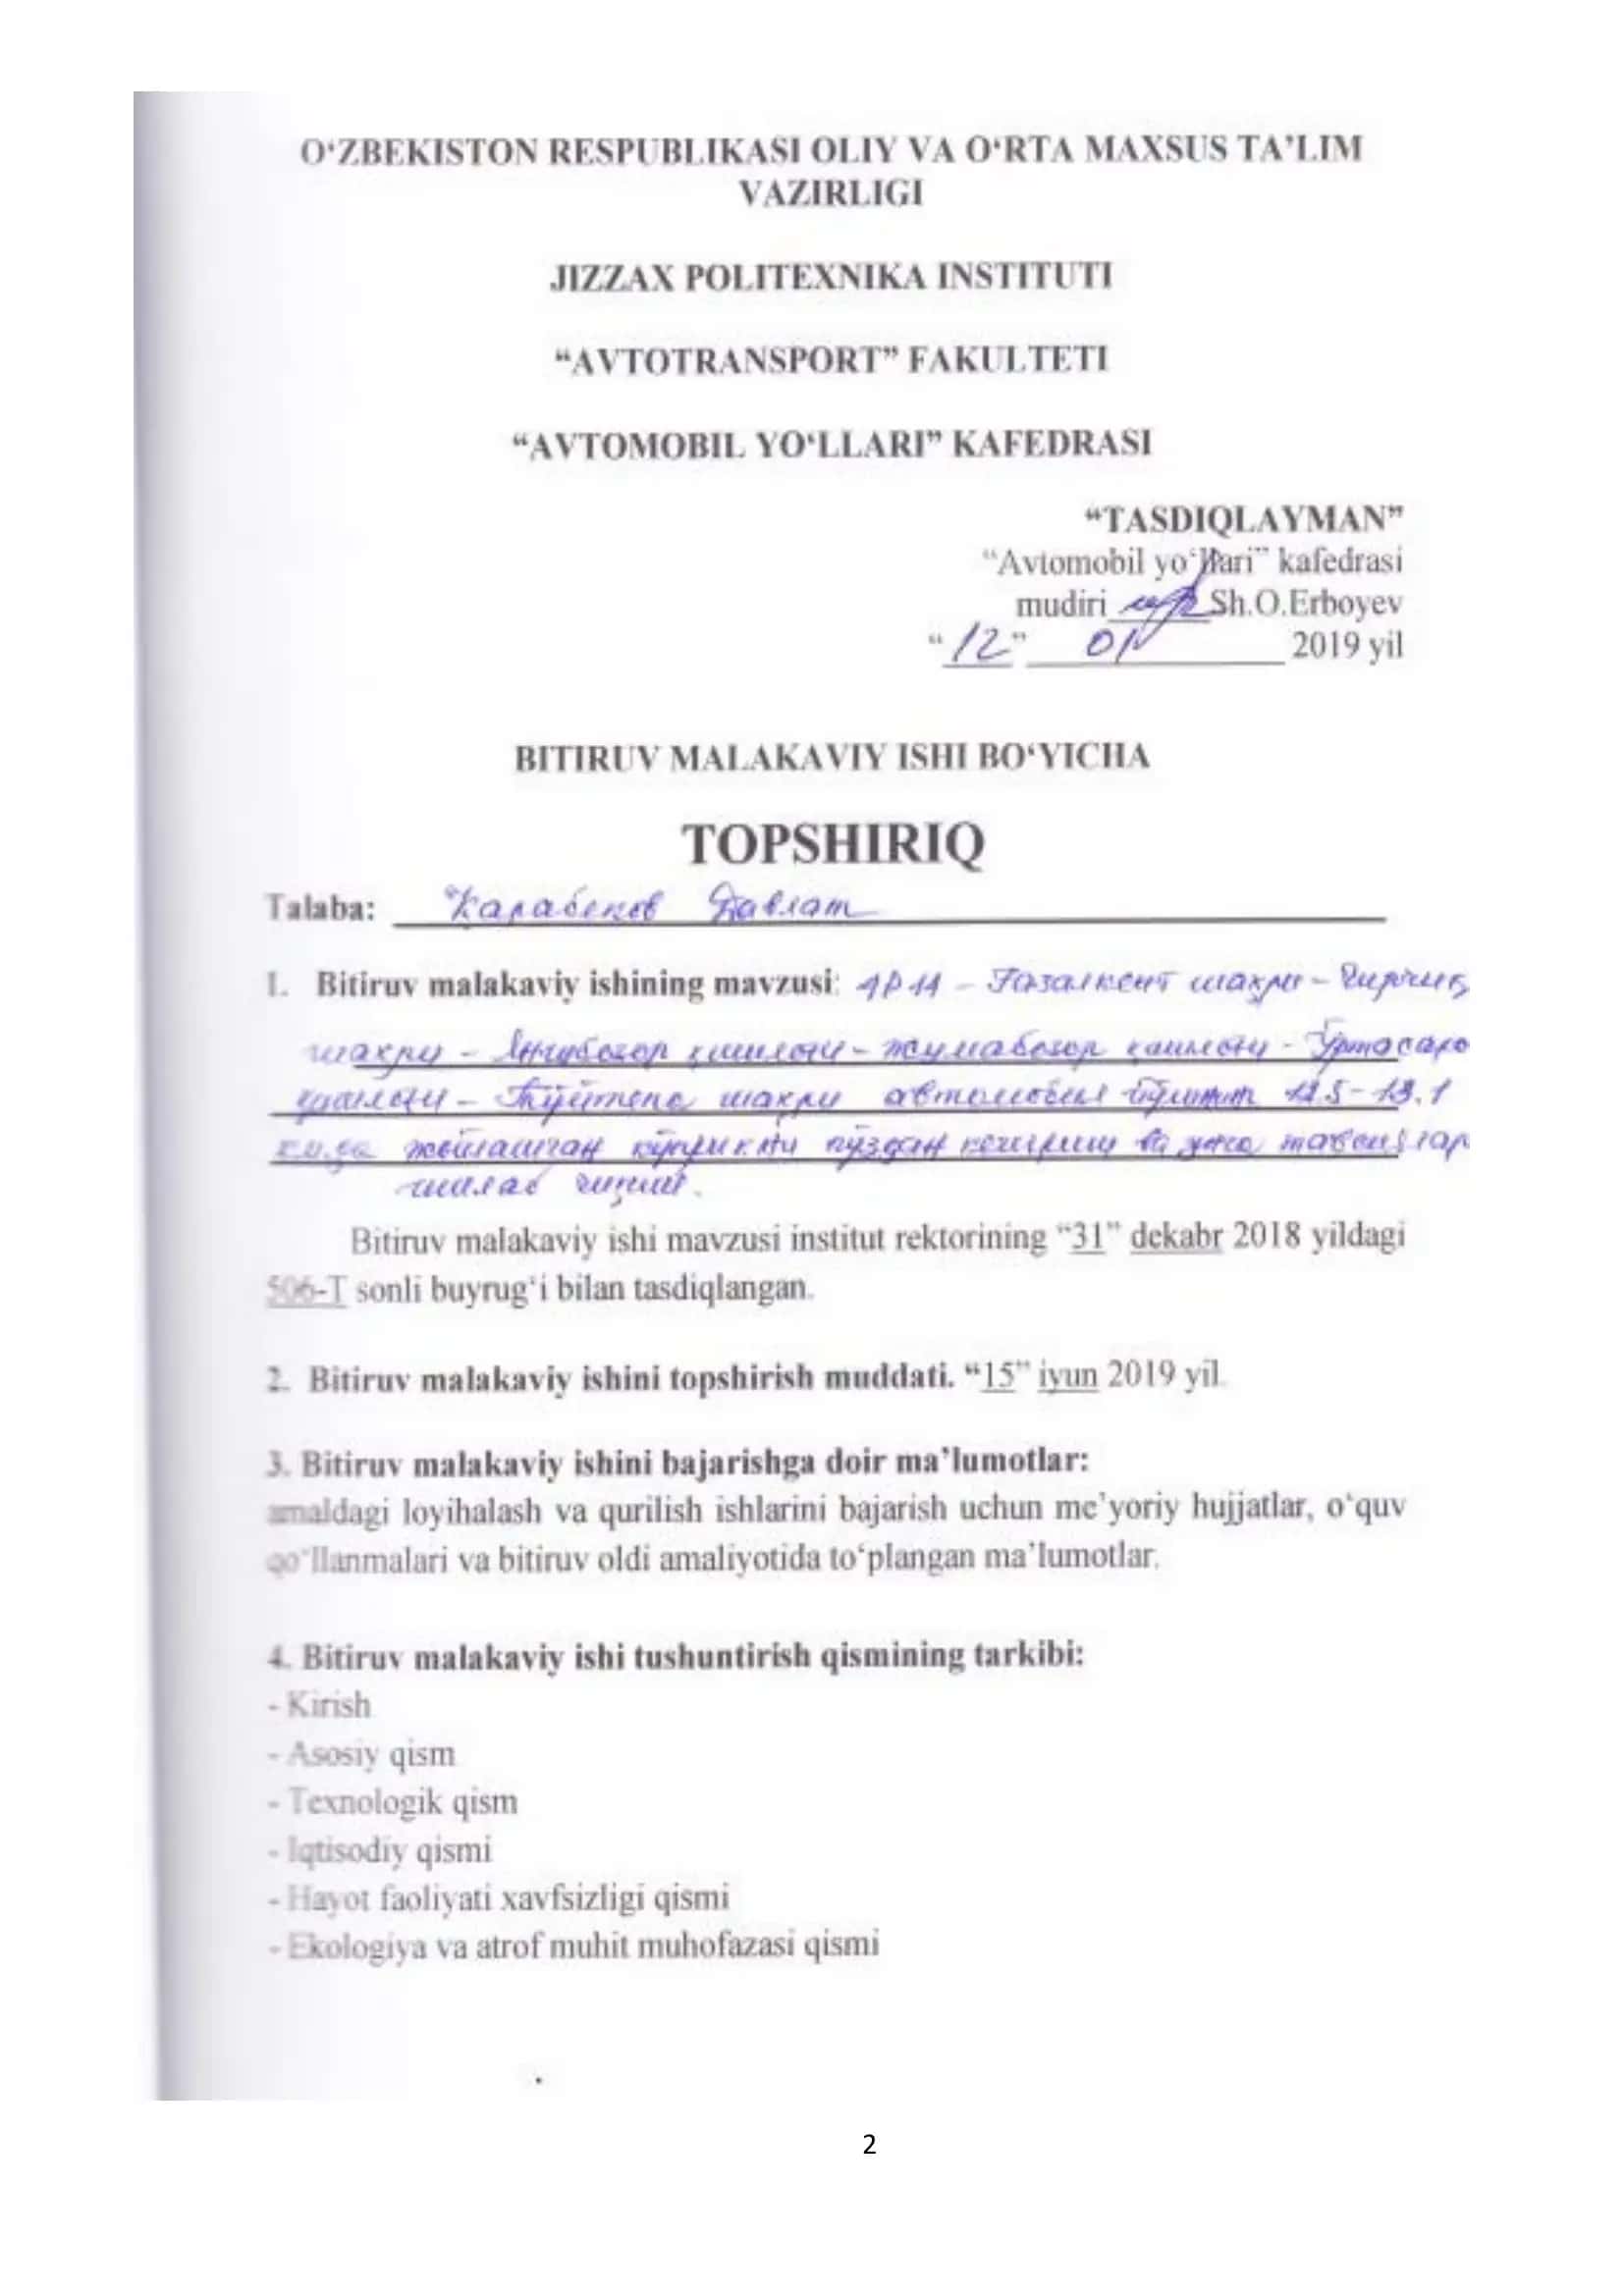 O‘ZBEKISTON RESPUBLIKASI OLIY VA O‘RTA MAXSUS TA’LIM
VAZIRLIGI
JIZZAX POLITEXNIKA INSTITUTI
“AVTOTRANSPORT” FAKULTETI
“AVTOMOBIL YO‘LLARI” KAFEDRASI
“TASDIQLAYMAN”
“Avtomobil yo‘llari” kafedrasi
mudiri Sh.O.Erboyev
“12” 01 2019 yil
BITIRUV MALAKAVIY ISHI BO‘YICHA
TOPSHIRIQ
Talaba: Карабеков Давлат
1. Bitiruv malakaviy ishining mavzusi: 4Р14 – Ғазалкент шаҳри – Чирчиқ
шаҳри – Янгибозор қишлоғи – Жумабозор қишлоғи – Ўртасарой
қишлоғи – Тўйтепа шаҳри автомобил йўлининг 12.5–13.1
км.да жойлашган кўприкни кўздан кечириш ва унга тавсиялар
ишлаб чиқиш.
Bitiruv malakaviy ishi mavzusi institut rektorining “31” dekabr 2018 yildagi
506-T sonli buyrug‘i bilan tasdiqlangan.
2. Bitiruv malakaviy ishini topshirish muddati. “15” iyun 2019 yil.
3. Bitiruv malakaviy ishini bajarishga doir ma’lumotlar:
amaldagi loyihalash va qurilish ishlarini bajarish uchun me’yoriy hujjatlar, o‘quv
qo‘llanmalari va bitiruv oldi amaliyotida to‘plangan ma’lumotlar.
4. Bitiruv malakaviy ishi tushuntirish qismining tarkibi:
- Kirish
- Asosiy qism
- Texnologik qism
- Iqtisodiy qismi
- Hayot faoliyati xavfsizligi qismi
- Ekologiya va atrof muhit muhofazasi qismi
2